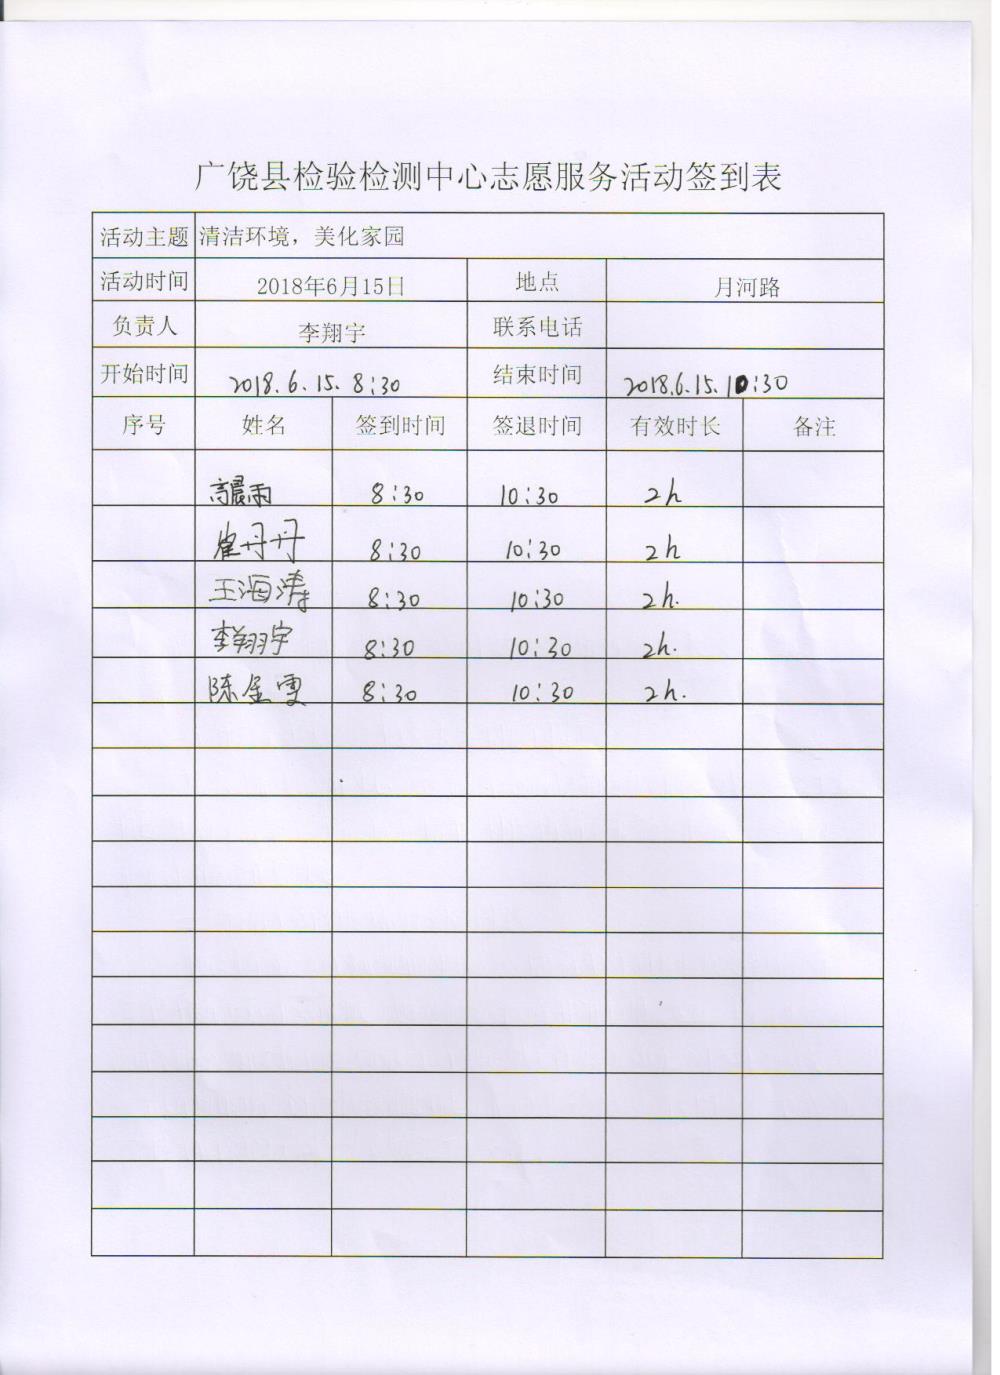 广饶县检验检测中心志愿服务活动签到表
活动主题 清洁环境，美化家园
活动时间 2018年6月15日 地点 月河路
负责人 李翔宇 联系电话
开始时间 2018.6.15. 8:30 结束时间 2018.6.15.10:30
序号 姓名 签到时间 签退时间 有效时长 备注
高晨雨 8:30 10:30 2h
崔丹丹 8:30 10:30 2h
王海涛 8:30 10:30 2h.
李翔宇 8:30 10:30 2h.
陈金雯 8:30 10:30 2h.